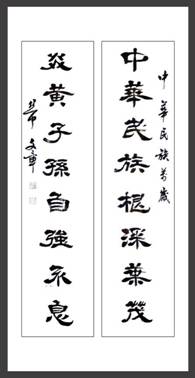 中華民族萬歲
中華民族根深葉茂
炎黃子孫自強不息